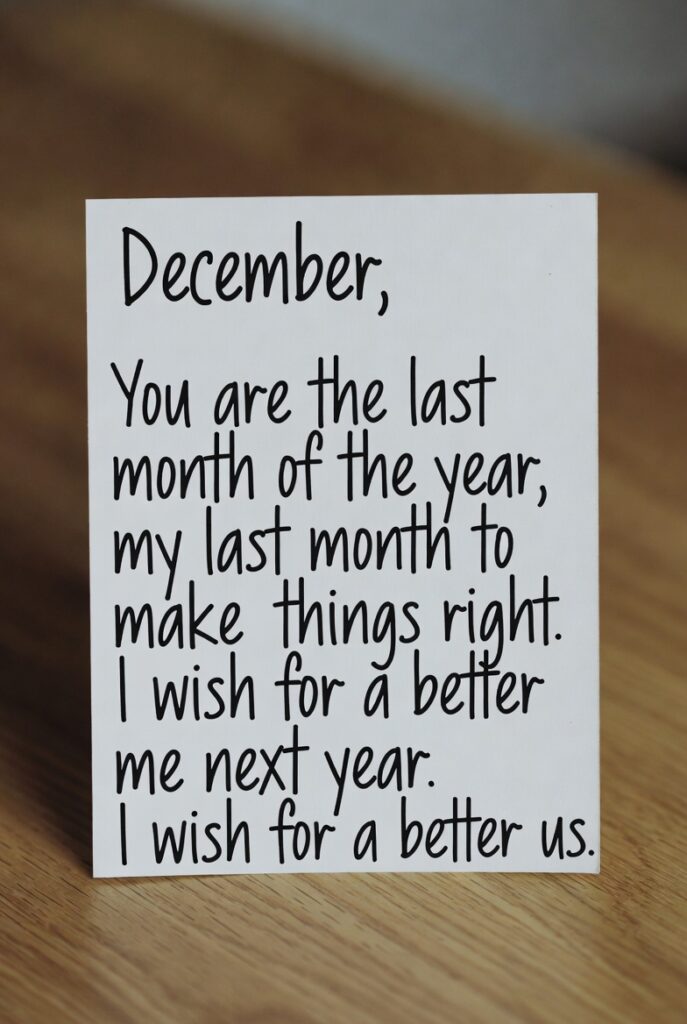 December,
You are the last
month of the year,
my last month to
make things right.
I wish for a better
me next year.
I wish for a better us.